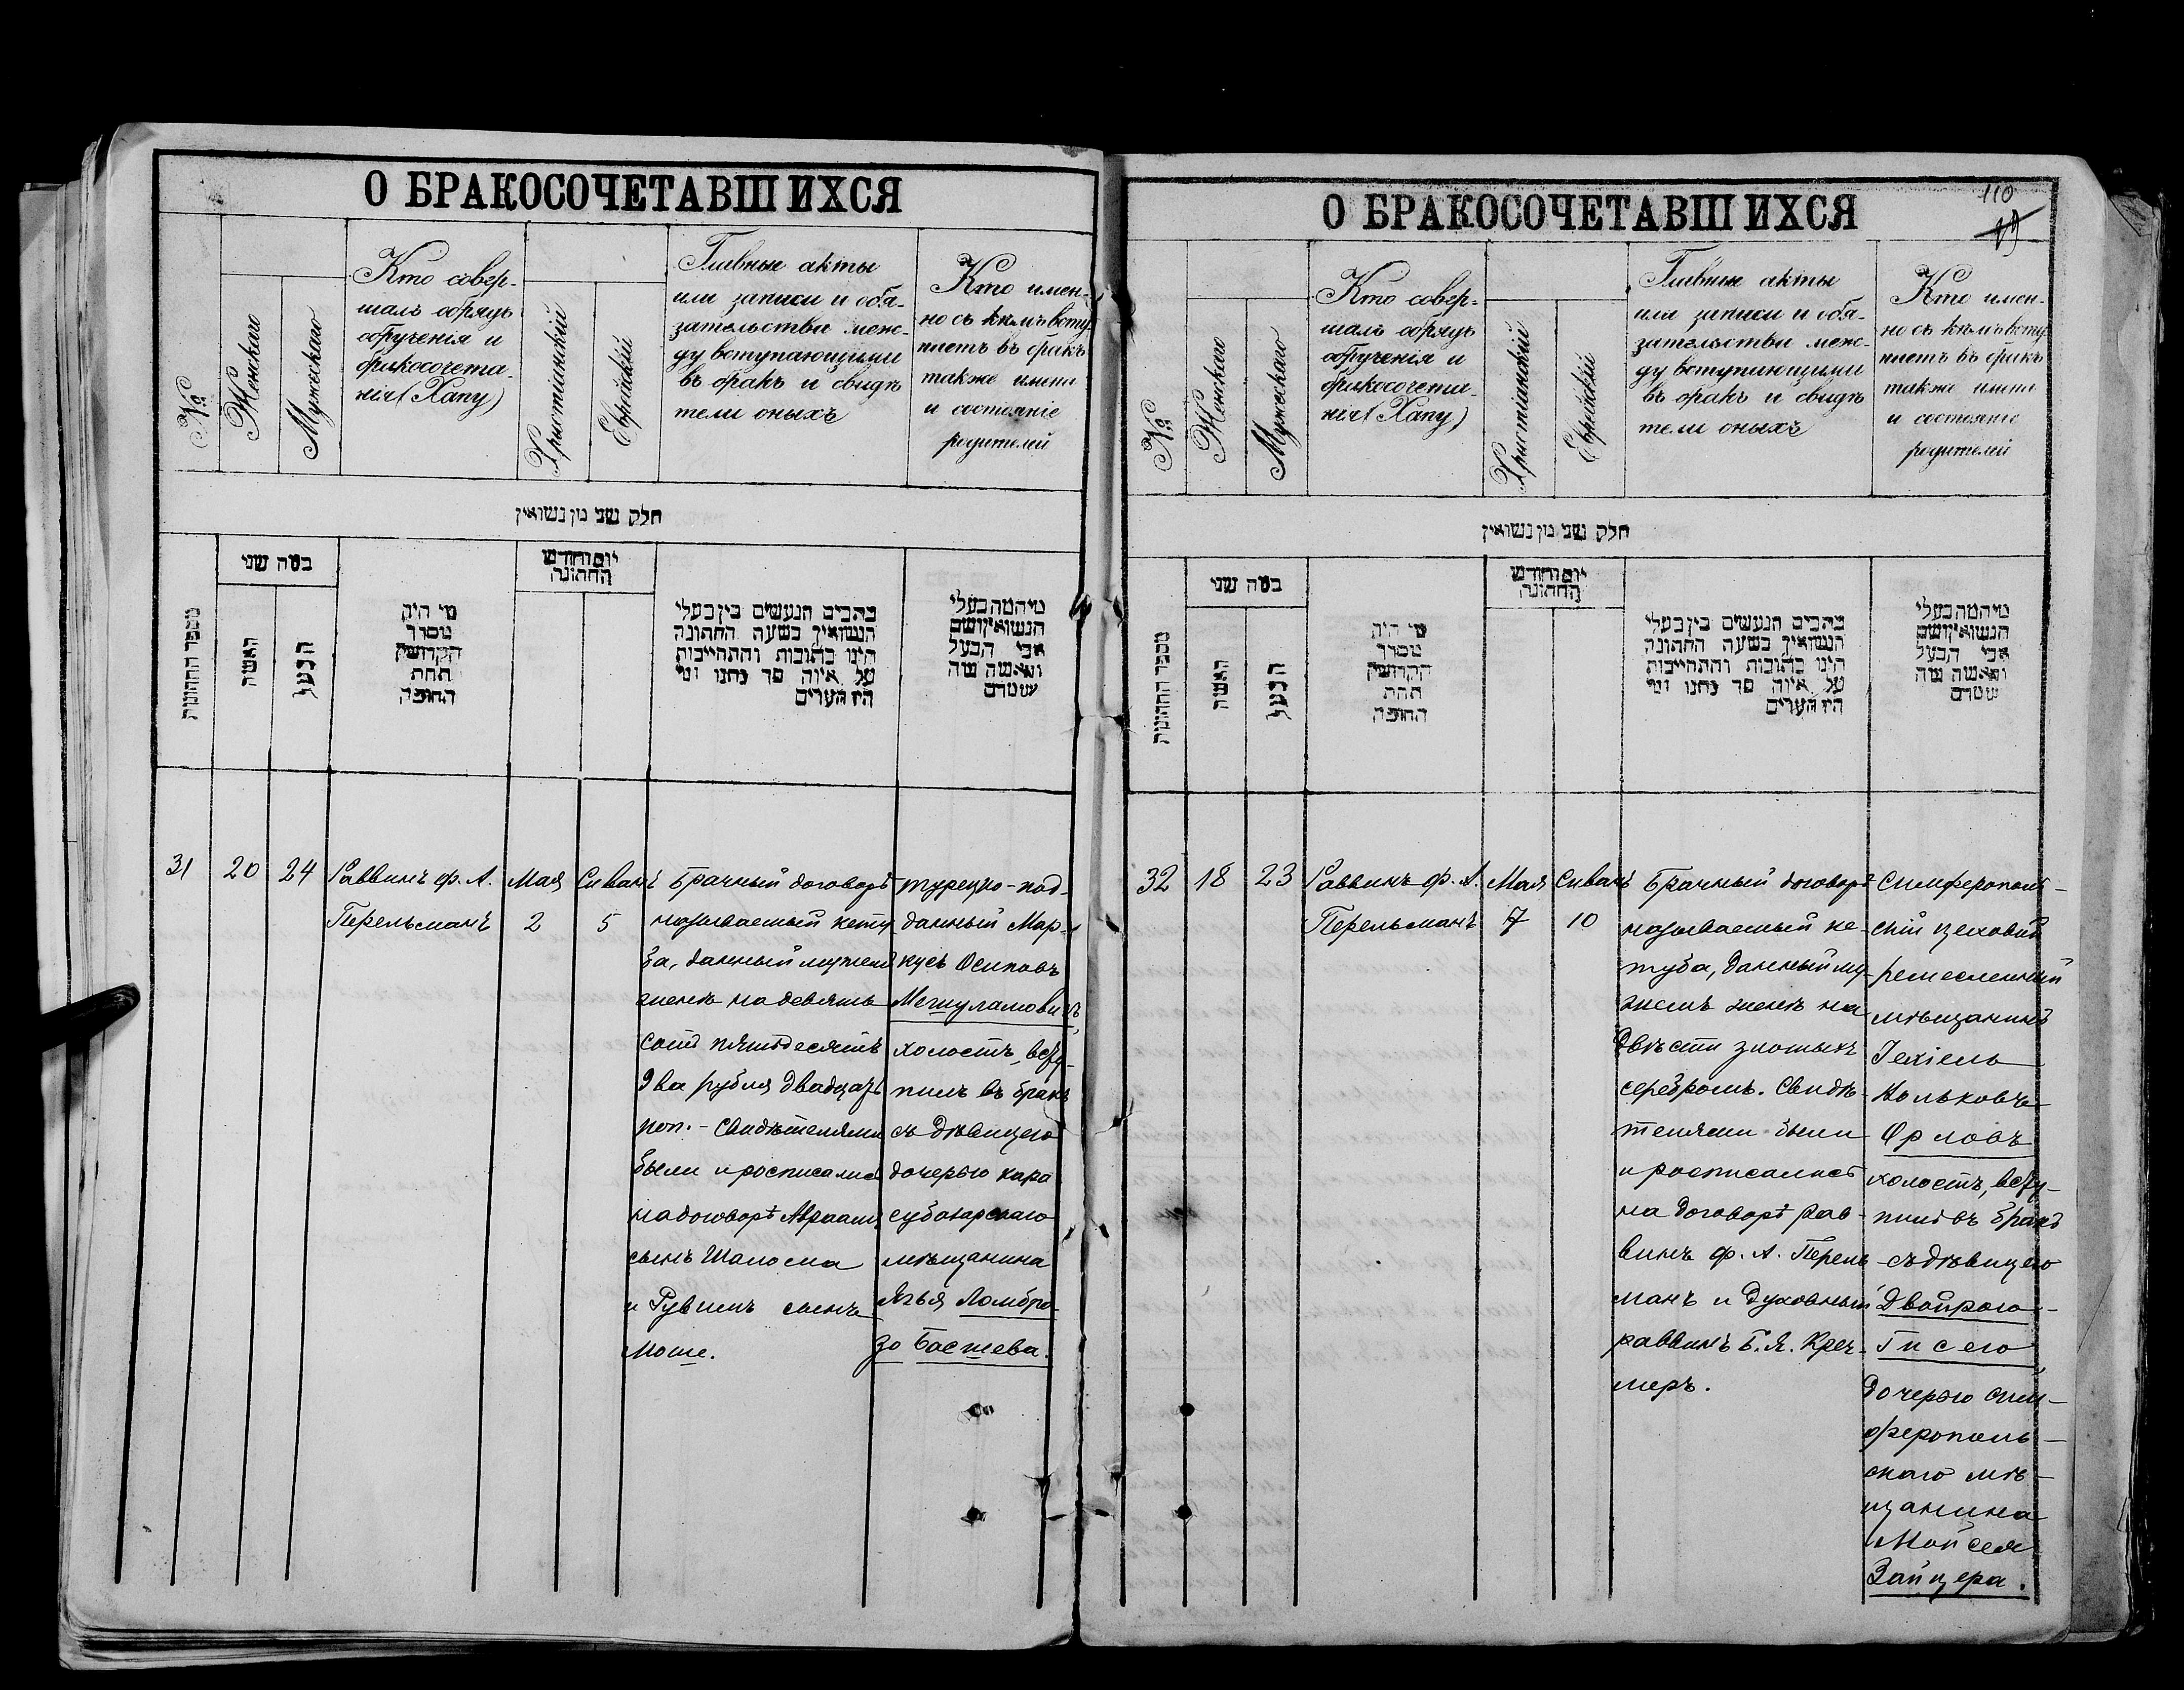 О БРАКОСОЧЕТАВШИХСЯ
№
Женскаго
Мужескаго
Кто совер-
шалъ обрядъ
обрученія и
бракосочета-
нія (Хапу)
Христіанскій
Еврейскій
Главные акты
или записи и обя-
зательства меж-
ду вступающими
въ бракъ и свидѣ
тели оныхъ
Кто имен-
но съ кѣмъ вступ
паетъ въ бракъ
также имена
и состояніе
родителей
חלק שני מן נשואין
מספר החתונות
במה שני
האשה
הבעל
מי היה
מסדר
הקדושין
תחת
החופה
יום וחודש
החתונה
כתבים הנעשים בין בעלי
הנשואין בשעה החתונה
הינו כתובות והתחייבות
על איזה סך נתנו ומי
היו העדים
מי המה בעלי
הנשואין ושם
אבי הבעל
והאשה מה
מעמדם
31
20
24
Раввинъ ф. А.
Перельманъ
Мая
2
Сиванъ
5
Брачный договоръ
называемый кету
ба, данный мужемъ
женѣ на девять
сотъ пятьдесятъ
два рубля двадцать
коп. - Свидѣтелями
были и росписались
на договорѣ Авраамъ
сынъ Шалома
и Рувимъ сынъ
Моше.
турецко-под-
данный Мар-
кусъ Осиповъ
Мешуламовичъ,
холостъ, всту-
пилъ въ бракъ
съ дѣвицею
дочерью кара
субазарскаго
мѣщанина
Ломбро-
зо Басшева.
110
О БРАКОСОЧЕТАВШИХСЯ
№
Женскаго
Мужескаго
Кто совер-
шалъ обрядъ
обрученія и
бракосочета-
нія (Хапу)
Христіанскій
Еврейскій
Главные акты
или записи и обя-
зательства меж-
ду вступающими
въ бракъ и свидѣ
тели оныхъ
Кто имен-
но съ кѣмъ вступ
паетъ въ бракъ
также имена
и состояніе
родителей
חלק שני מן נשואין
מספר החתונות
במה שני
האשה
הבעל
מי היה
מסדר
הקדושין
תחת
החופה
יום וחודש
החתונה
כתבים הנעשים בין בעלי
הנשואין בשעה החתונה
הינו כתובות והתחייבות
על איזה סך נתנו ומי
היו העדים
מי המה בעלי
הנשואין ושם
אבי הבעל
והאשה מה
מעמדם
32
18
23
Раввинъ ф. А.
Перельманъ
Мая
7
Сиванъ
10
Брачный договоръ
называемый ке-
туба, данный му-
жемъ женѣ на
двѣсти злотыхъ
серебромъ. Свидѣ-
телями были
и росписались
на договорѣ рав-
винъ ф. А. Перель
манъ и духовный
раввинъ Б. Я. Кре-
меръ.
Симферополь-
скій цеховый
ремесленный
мѣщанинъ
Іехіель
Вольковъ
Орловъ
холостъ, всту-
пилъ въ бракъ
съ дѣвицею
Двойрою-
Гисею,
дочерью сим-
ферополь-
скаго мѣ-
щанина
Мойсея
Зайцера.